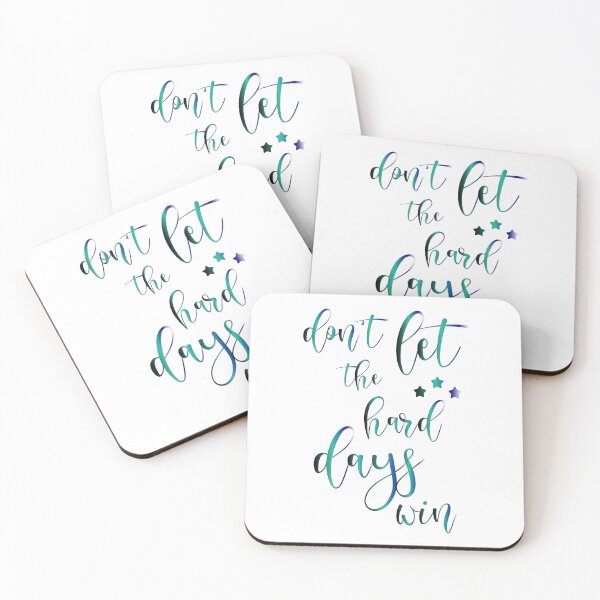 don't let
the
don't let
the
hard
days
don't let
the
hard
days
don't let
the
hard
days
win